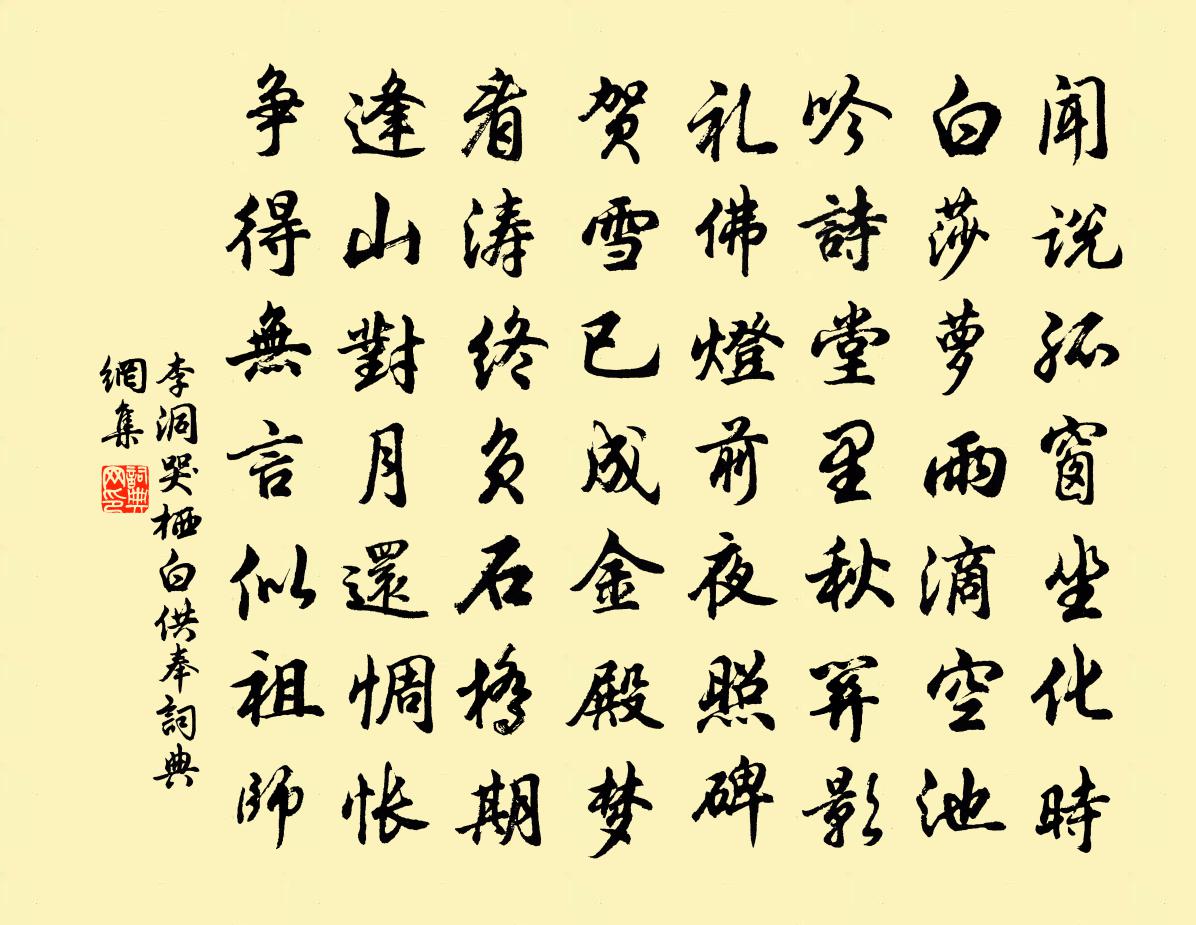 闻说孤窗坐化時
白莎萝雨滴空池
吟詩堂里秋關影
礼佛燈前夜照碑
贺雪已成金殿梦
看涛终负石橋期
逢山對月還惆怅
争得無言似祖師
李洞哭栖白供奉詞典
網集
詞典網印